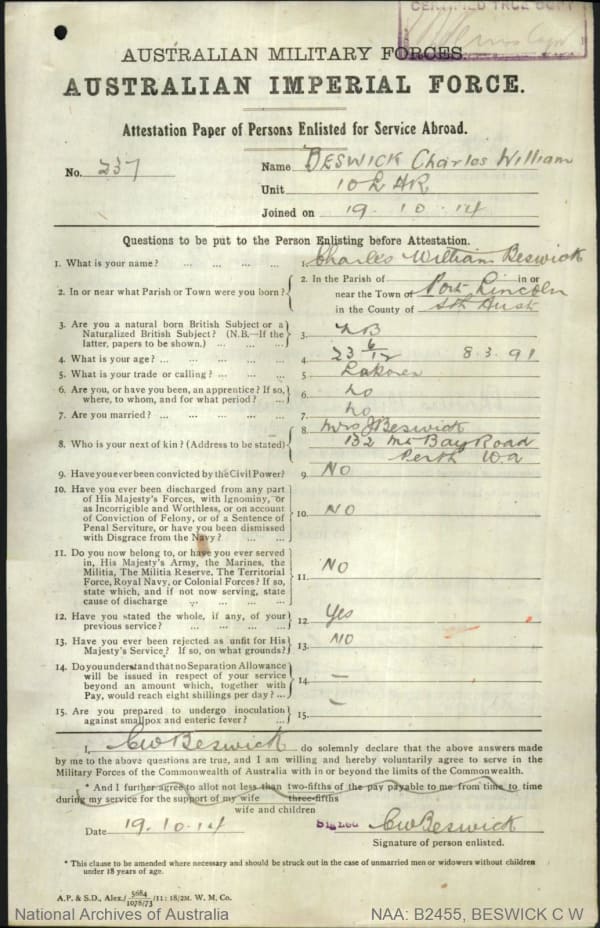 CERTIFIED TRUE COPY
AUSTRALIAN MILITARY FORCES.
AUSTRALIAN IMPERIAL FORCE.
Attestation Paper of Persons Enlisted for Service Abroad.
No. 237
Name BESWICK Charles William
Unit 10 L H R
Joined on 19. 10. 14
Questions to be put to the Person Enlisting before Attestation.
1. What is your name? ... ... ... ... 1. Charles William Beswick
2. In or near what Parish or Town were you born? 2. In the Parish of in or
near the Town of Port Lincoln
in the County of Sth Aust
3. Are you a natural born British Subject or a
Naturalized British Subject? (N.B.—If the
latter, papers to be shown.) ... ... ... 3. NB
4. What is your age? ... ... ... ... 4. 23 6/12 8. 3. 91
5. What is your trade or calling? ... ... ... 5. Laborer
6. Are you, or have you been, an apprentice? If so,
where, to whom, and for what period? ... ... 6. No
7. Are you married? ... ... ... ... 7. No
8. Who is your next of kin? (Address to be stated) 8. Mrs J Beswick
132 Mt Bay Road
Perth W.a
9. Have you ever been convicted by the Civil Power? 9. NO
10. Have you ever been discharged from any part
of His Majesty's Forces, with Ignominy, or
as Incorrigible and Worthless, or on account
of Conviction of Felony, or of a Sentence of
Penal Serviture, or have you been dismissed
with Disgrace from the Navy? ... ... 10. NO
11. Do you now belong to, or have you ever served
in, His Majesty's Army, the Marines, the
Militia, The Militia Reserve, The Territorial
Force, Royal Navy, or Colonial Forces? If so,
state which, and if not now serving, state
cause of discharge ... ... ... 11. NO
12. Have you stated the whole, if any, of your
previous service? ... ... ... 12. Yes
13. Have you ever been rejected as unfit for His
Majesty's Service? If so, on what grounds? 13. NO
14. Do you understand that no Separation Allowance
will be issued in respect of your service
beyond an amount which, together with
Pay, would reach eight shillings per day? ... 14. —
15. Are you prepared to undergo inoculation
against smallpox and enteric fever? ... 15. —
I, CW Beswick do solemnly declare that the above answers made
by me to the above questions are true, and I am willing and hereby voluntarily agree to serve in the
Military Forces of the Commonwealth of Australia with in or beyond the limits of the Commonwealth.
* And I further agree to allot not less than two-fifths of the pay payable to me from time to time
during my service for the support of my wife three-fifths
wife and children
Date 19. 10. 14 SIGNED CW Beswick
Signature of person enlisted.
* This clause to be amended where necessary and should be struck out in the case of unmarried men or widowers without children
under 18 years of age.
A.P. & S.D., Alex./ 5684
1078/73 /11: 18/2M. W. M. Co.
National Archives of Australia
NAA: B2455, BESWICK C W